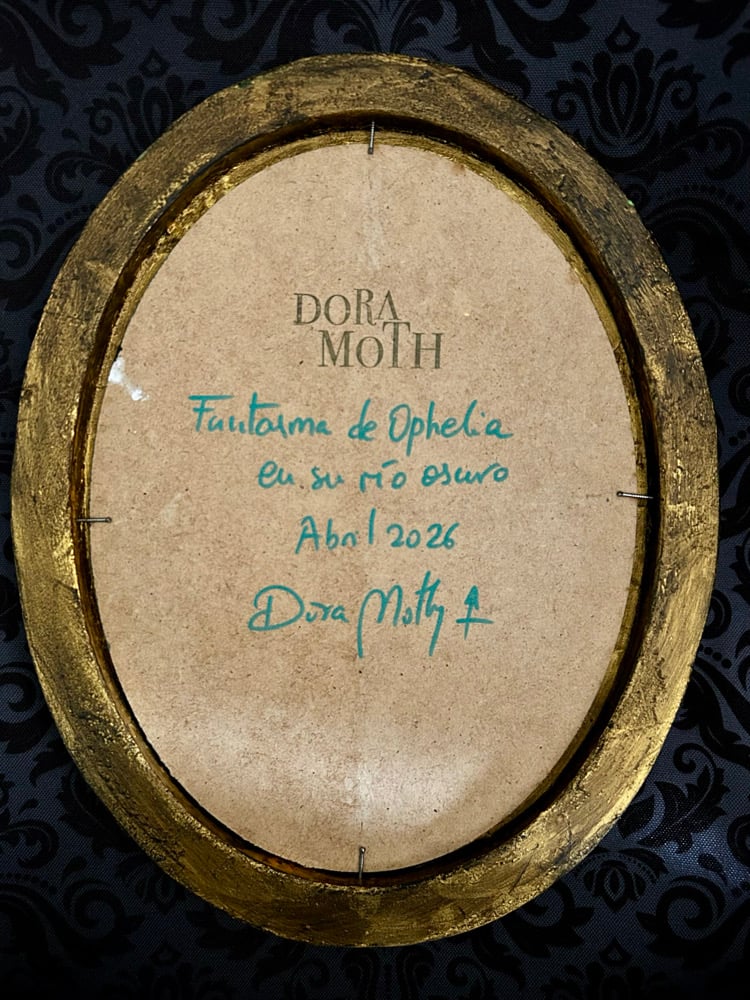 DORA
MOTH
Fantasma de Ophelia
en su río oscuro
Abril 2026
Dora Moth